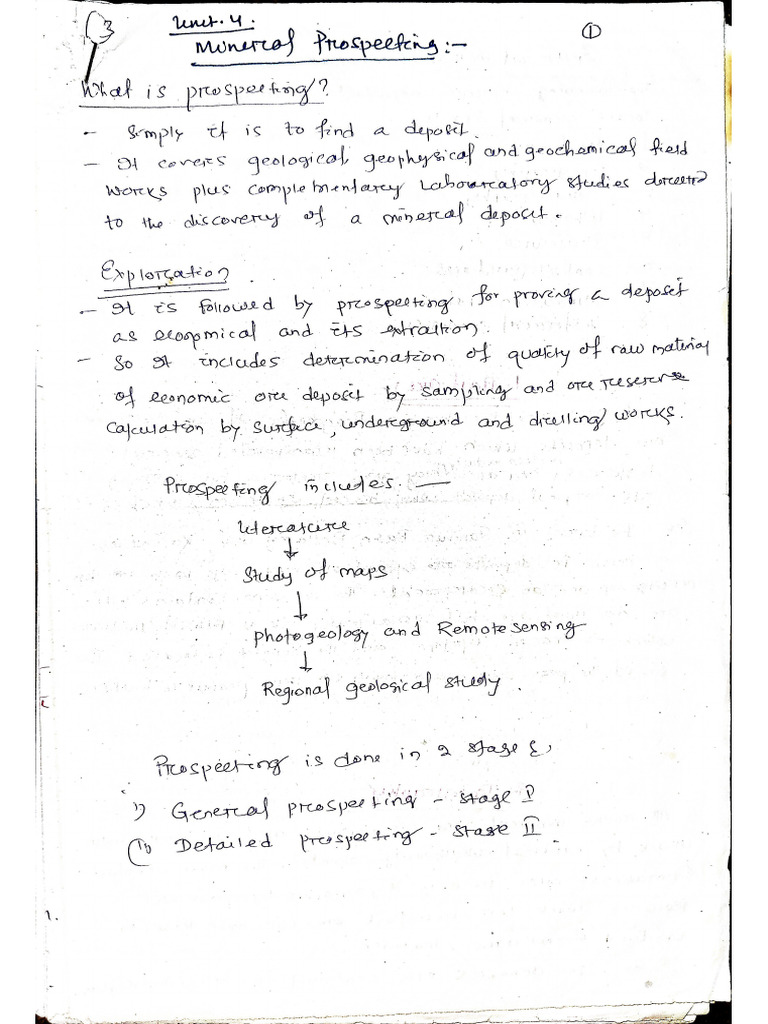 3
Unit. 4.
①
Mineral Prospecting :-
What is prospecting?
- Simply it is to find a deposit.
- It covers geological, geophysical and geochemical field
works plus complementary Labouratory studies directed
to the discovery of a mineral deposit.
Exploration
- It is followed by prospecting for proving a deposit
as economical and its extraction.
- So It includes determination of quality of raw material
of economic ore deposit by sampling and ore reserve
calculation by surface, underground and drelling works.
Prospecting includes. —
Literature
↓
Study of maps
↓
photogeology and Remote sensing
↓
Regional geological study.
Prospecting is done in 2 stages,
i) General prospecting - stage I
ii) Detailed prospecting - stage II
1.